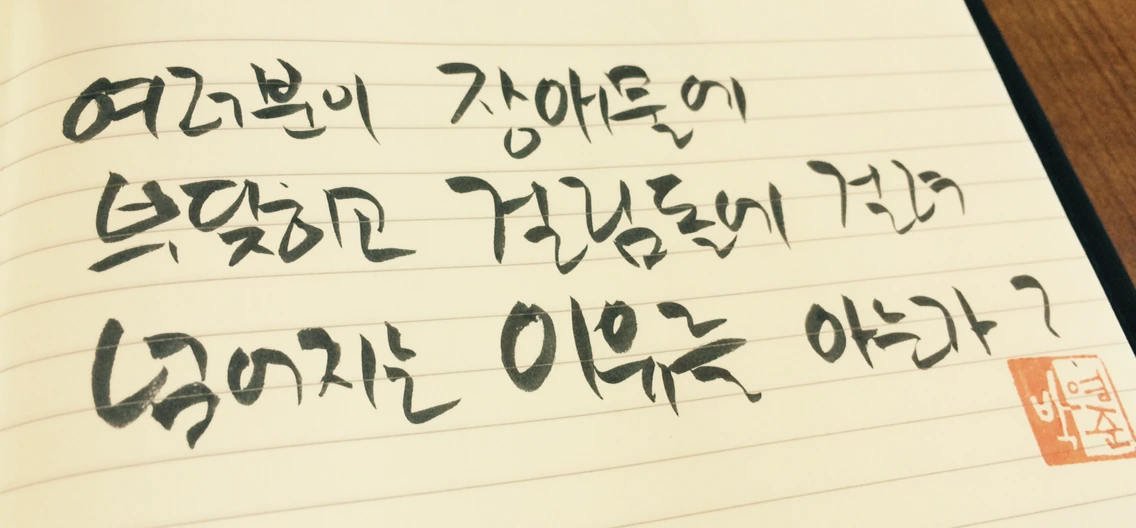 여러분이 장애물에
부딪히고 걸림돌에 걸려
넘어지는 이유를 아는가?